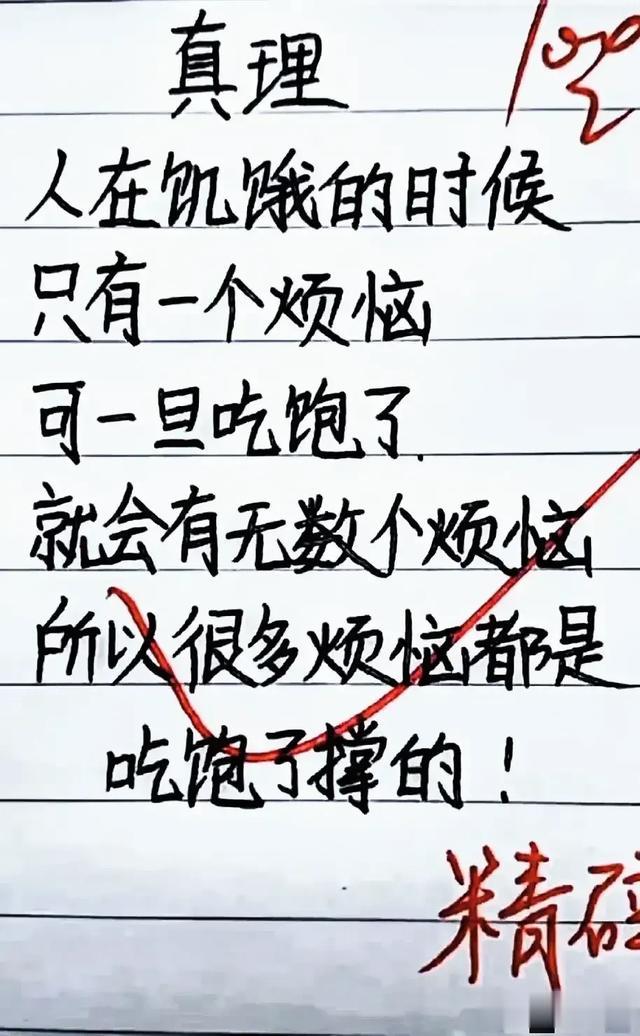 真理
100
人在饥饿的时候
只有一个烦恼
可一旦吃饱了.
就会有无数个烦恼
所以很多烦恼都是
吃饱了撑的！
精辟